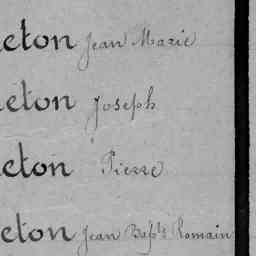 eton Jean Marie
eton Joseph
eton Pierre
eton Jean Bapte Romain